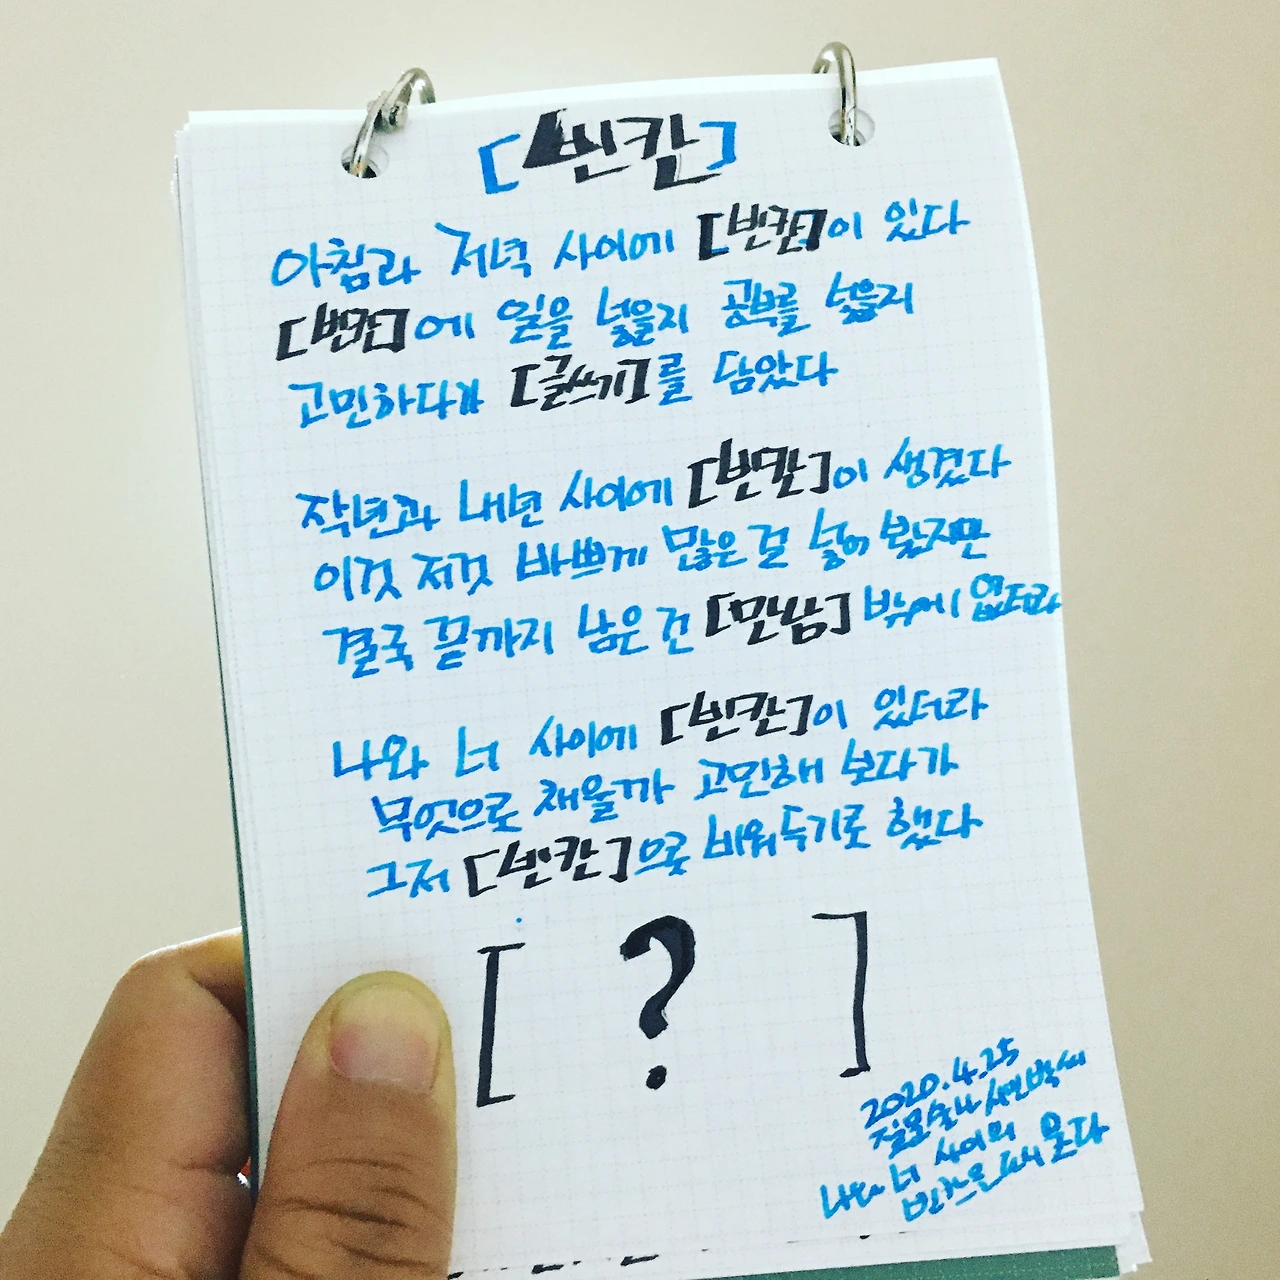 [빈칸]
아침과 저녁 사이에 [빈칸]이 있다
[빈칸]에 일을 넣을지 공부를 넣을지
고민하다가 [글쓰기]를 담았다
작년과 내년 사이에 [빈칸]이 생겼다
이것 저것 바쁘게 많은 걸 넣어 봤지만
결국 끝까지 남은 건 [만남] 밖에 없더라
나와 너 사이에 [빈칸]이 있더라
무엇으로 채울까 고민해 보다가
그저 [빈칸]으로 비워두기로 했다
[ ? ]
2020.4.25
질문술사 시인박씨
나와 너 사이의
빈칸은